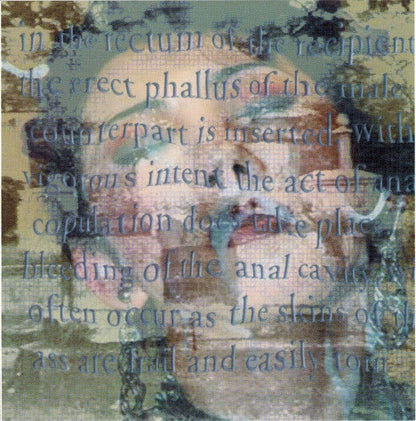 in the rectum of the recipient
the erect phallus of the male
counterpart is inserted with
vigorous intent the act of ana
copulation does take place
bleeding of the anal cavity w
often occur as the skins of th
ass are frail and easily torn